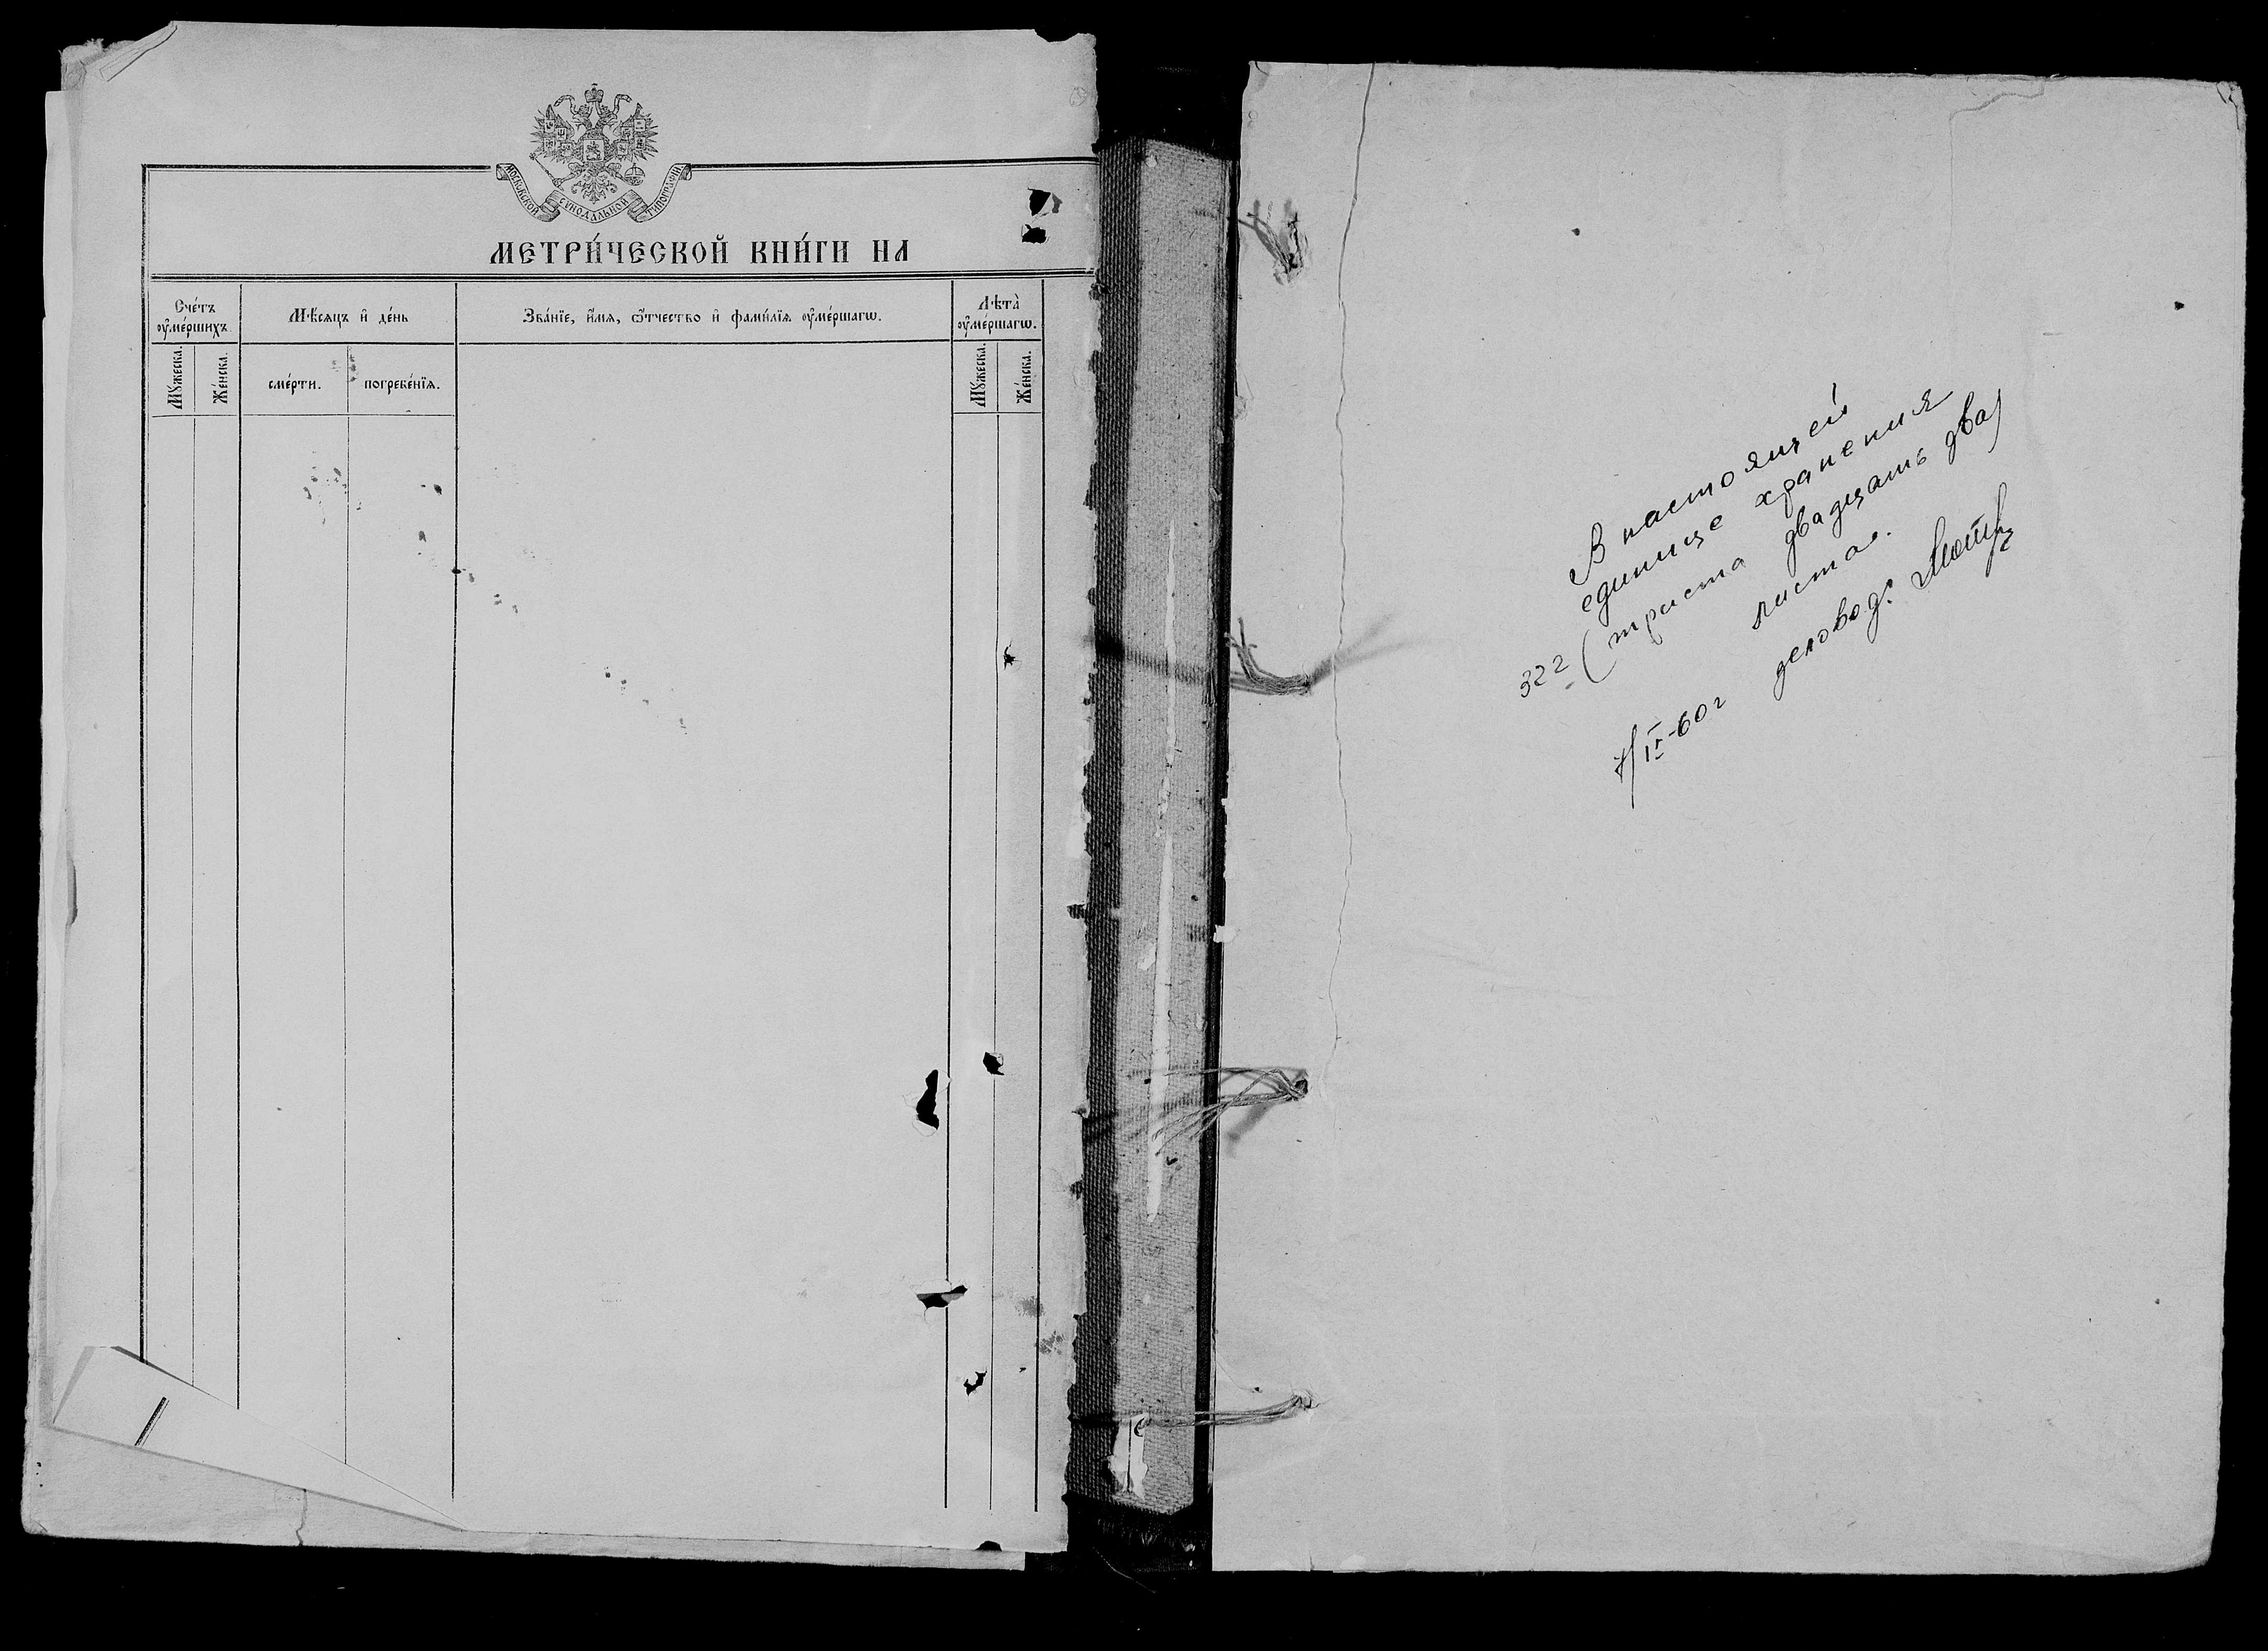 МОСКОВСКОЙ СѴНОДАЛЬНОЙ ТИПОГРАФІИ
МЕТРИ́ЧЕСКОЙ КНИ́ГИ НА
Сче́тъ ᲂу҆ме́ршихъ.
Мѣ́сѧцъ и҆ де́нь
Зва́нїе, и҆́мѧ, ѻ҆́тчество и҆ фами́лїѧ ᲂу҆ме́ршагѡ.
Лѣ́та ᲂу҆ме́ршагѡ.
Мꙋ́жеска.
Же́нска.
сме́рти.
погребе́нїѧ.
Мꙋ́жеска.
Же́нска.
В настоящей
единице хранения
322 (триста двадцать два)
листа.
деловод: